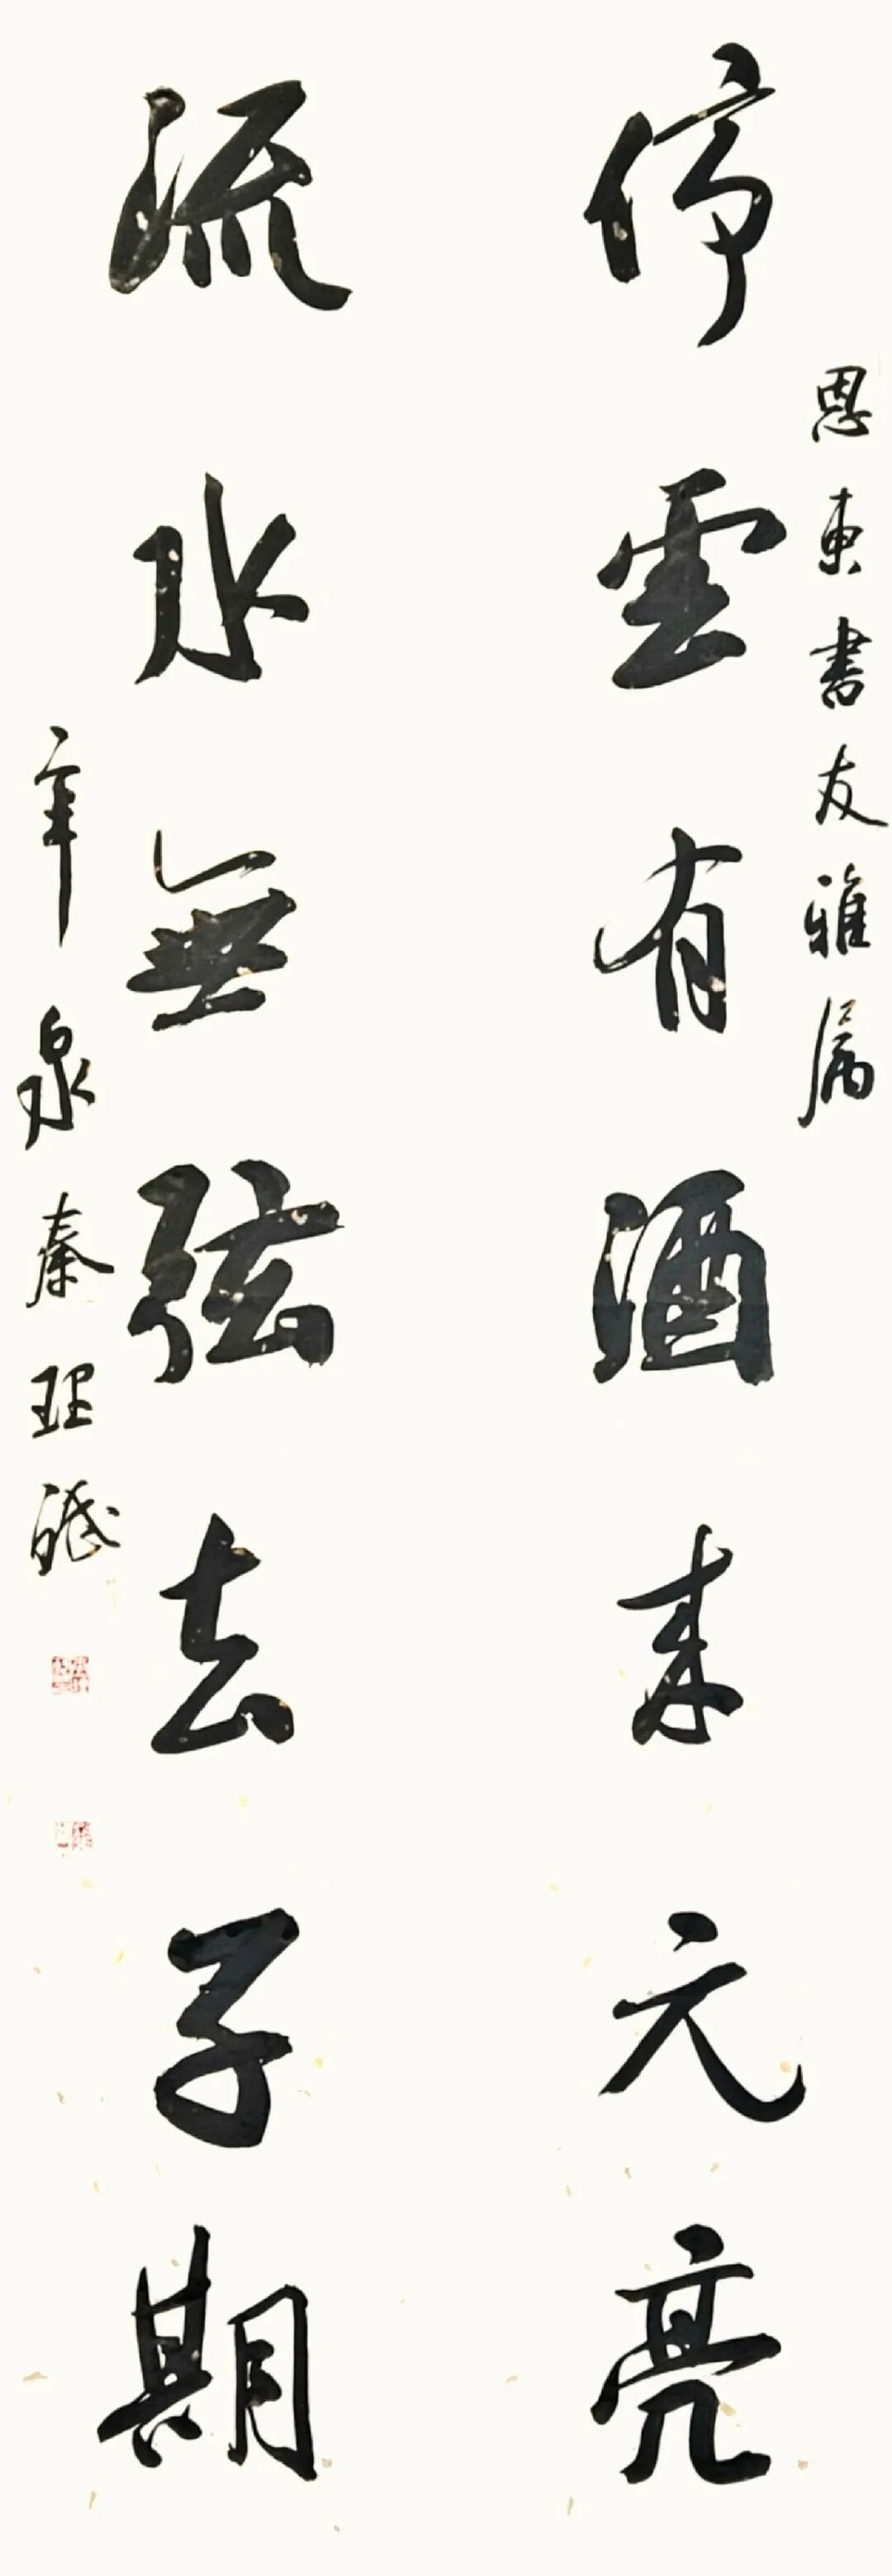 恩東書友雅属
停雲有酒来元亮
流水無弦去子期
辛泉秦理